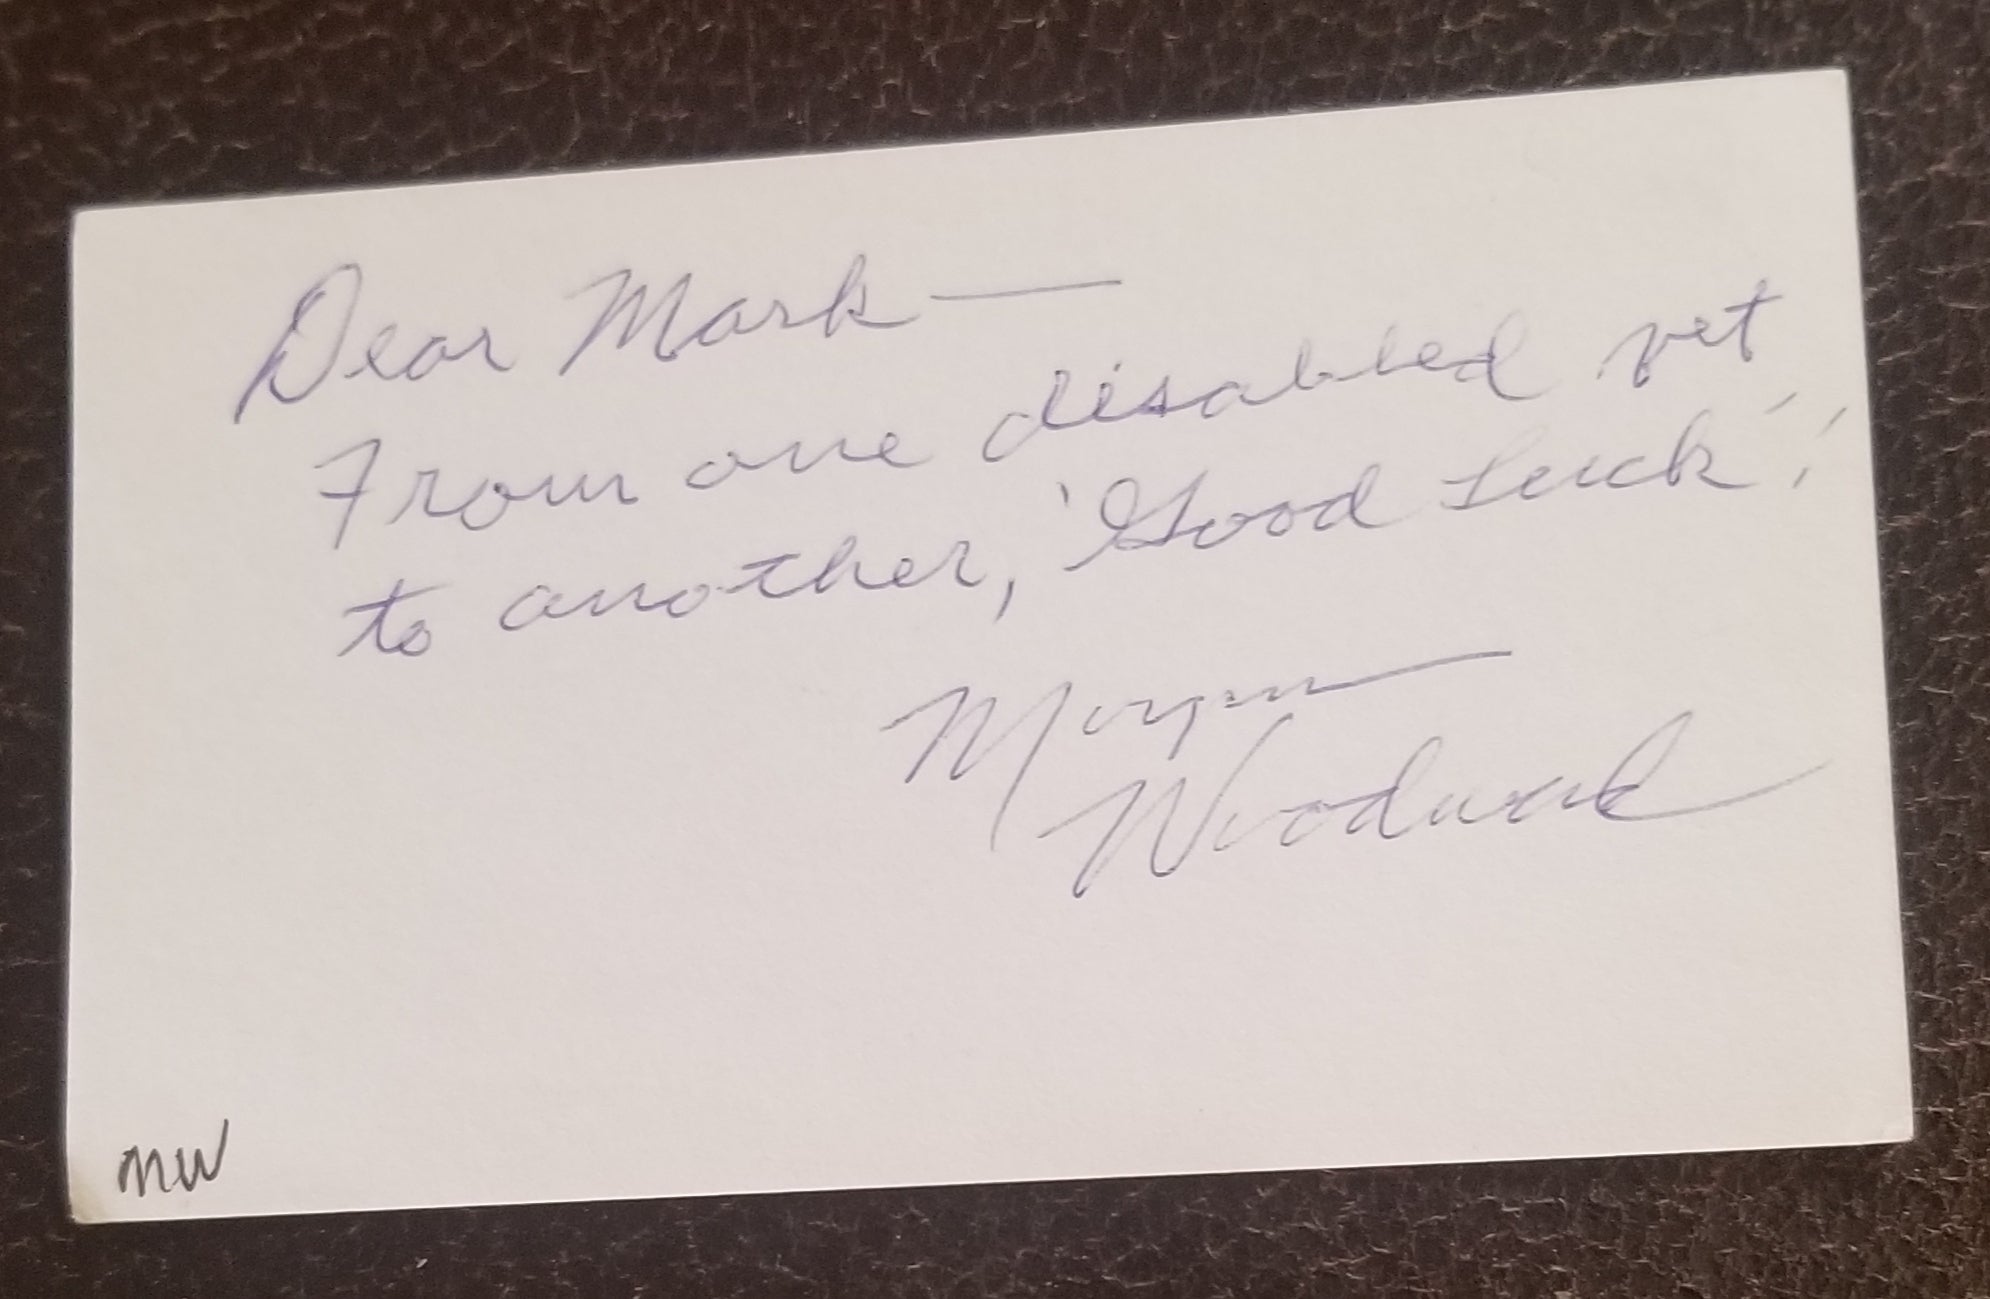 Dear Mark —
From one disabled vet
to another, 'Good Luck'!
Morgan
Woodward
MW